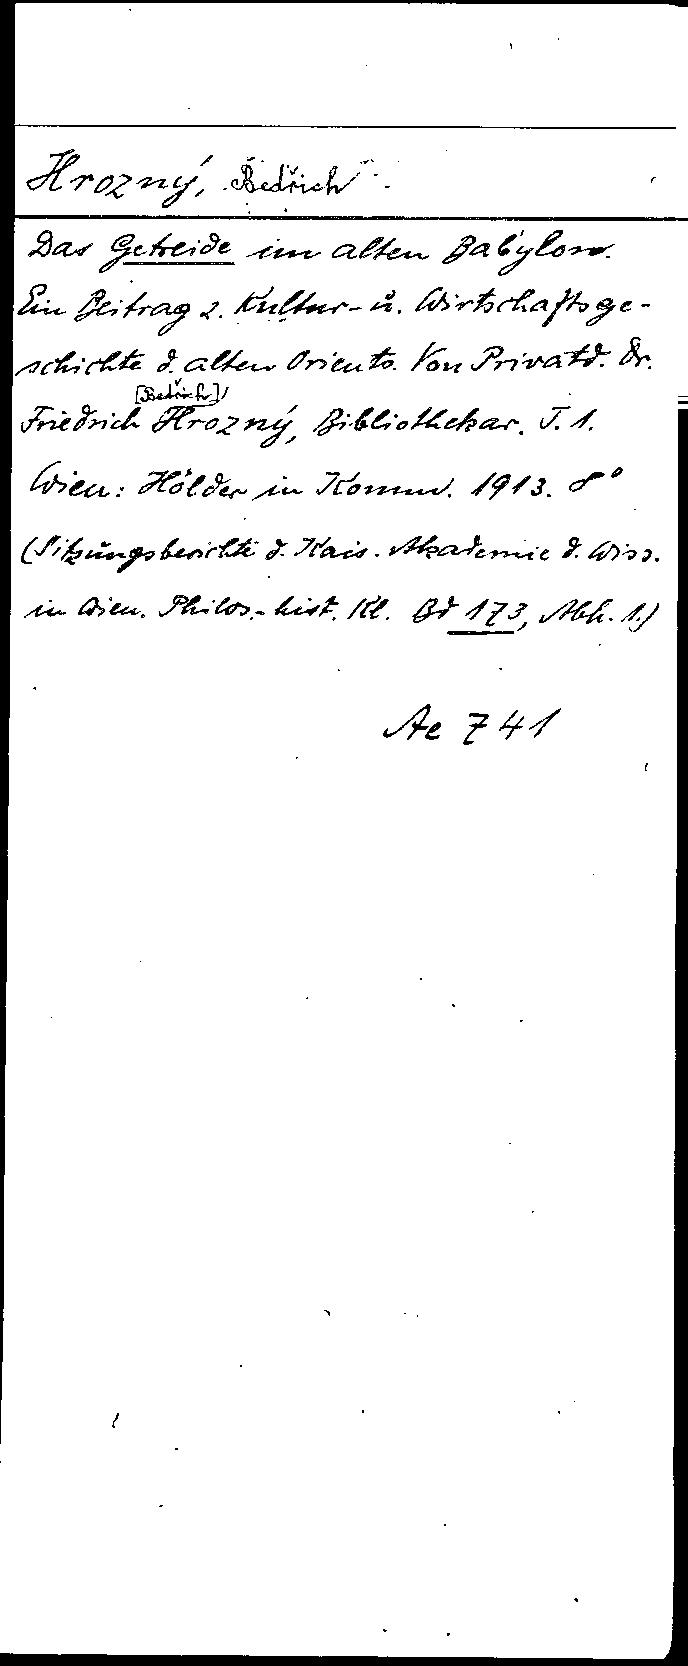 Hrozný, Bedřich
Das Getreide im alten Babylon.
Ein Beitrag z. Kultur- u. Wirtschaftsge-
schichte d. alten Orients. Von Privatd. Dr.
[Bedřich]
Friedrich Hrozný, Bibliothekar. T. 1.
Wien: Hölder in Komm. 1913. 8°
(Sitzungsberichte d. Kais. Akademie d. Wiss.
in Wien. Philos.-hist. Kl. Bd 173, Abh. 1.)
Ae 741